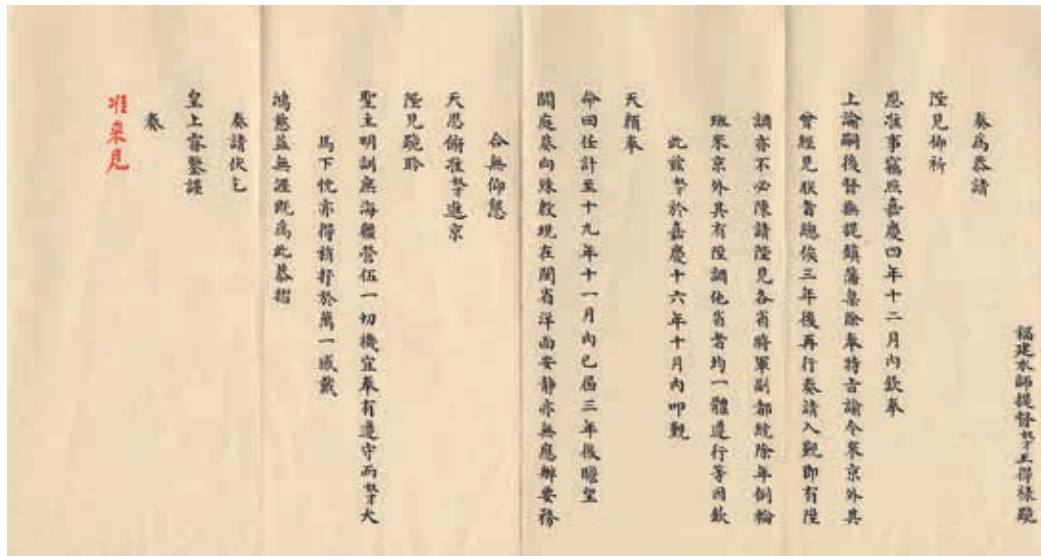 福建水師提督奴才王得祿跪
奏為恭請
陛見仰祈
恩准事竊照嘉慶四年十二月內欽奉
上諭嗣後督撫提鎮藩臬除奉特旨諭令來京外其
曾經見朕者總俟三年後再行奏請入覲即有陞
調亦不必陳請陛見各省將軍副都統除年例輪
班來京外其有陞調他省者均一體遵行等因欽
此茲奴才於嘉慶十六年十月內叩覲
天顏奉
命回任計至十九年十一月內已屆三年後瞻望
闕庭葵向殊殷現在閩省洋面安靜亦無應辦要務
合無仰懇
天恩俯准奴才進京
陛見跪聆
聖主明訓庶海疆營伍一切機宜奉有遵守而奴才犬
馬下忱亦得稍抒於萬一感戴
鴻慈益無涯既為此恭摺
奏請伏乞
皇上睿鑒謹
奏
准來見